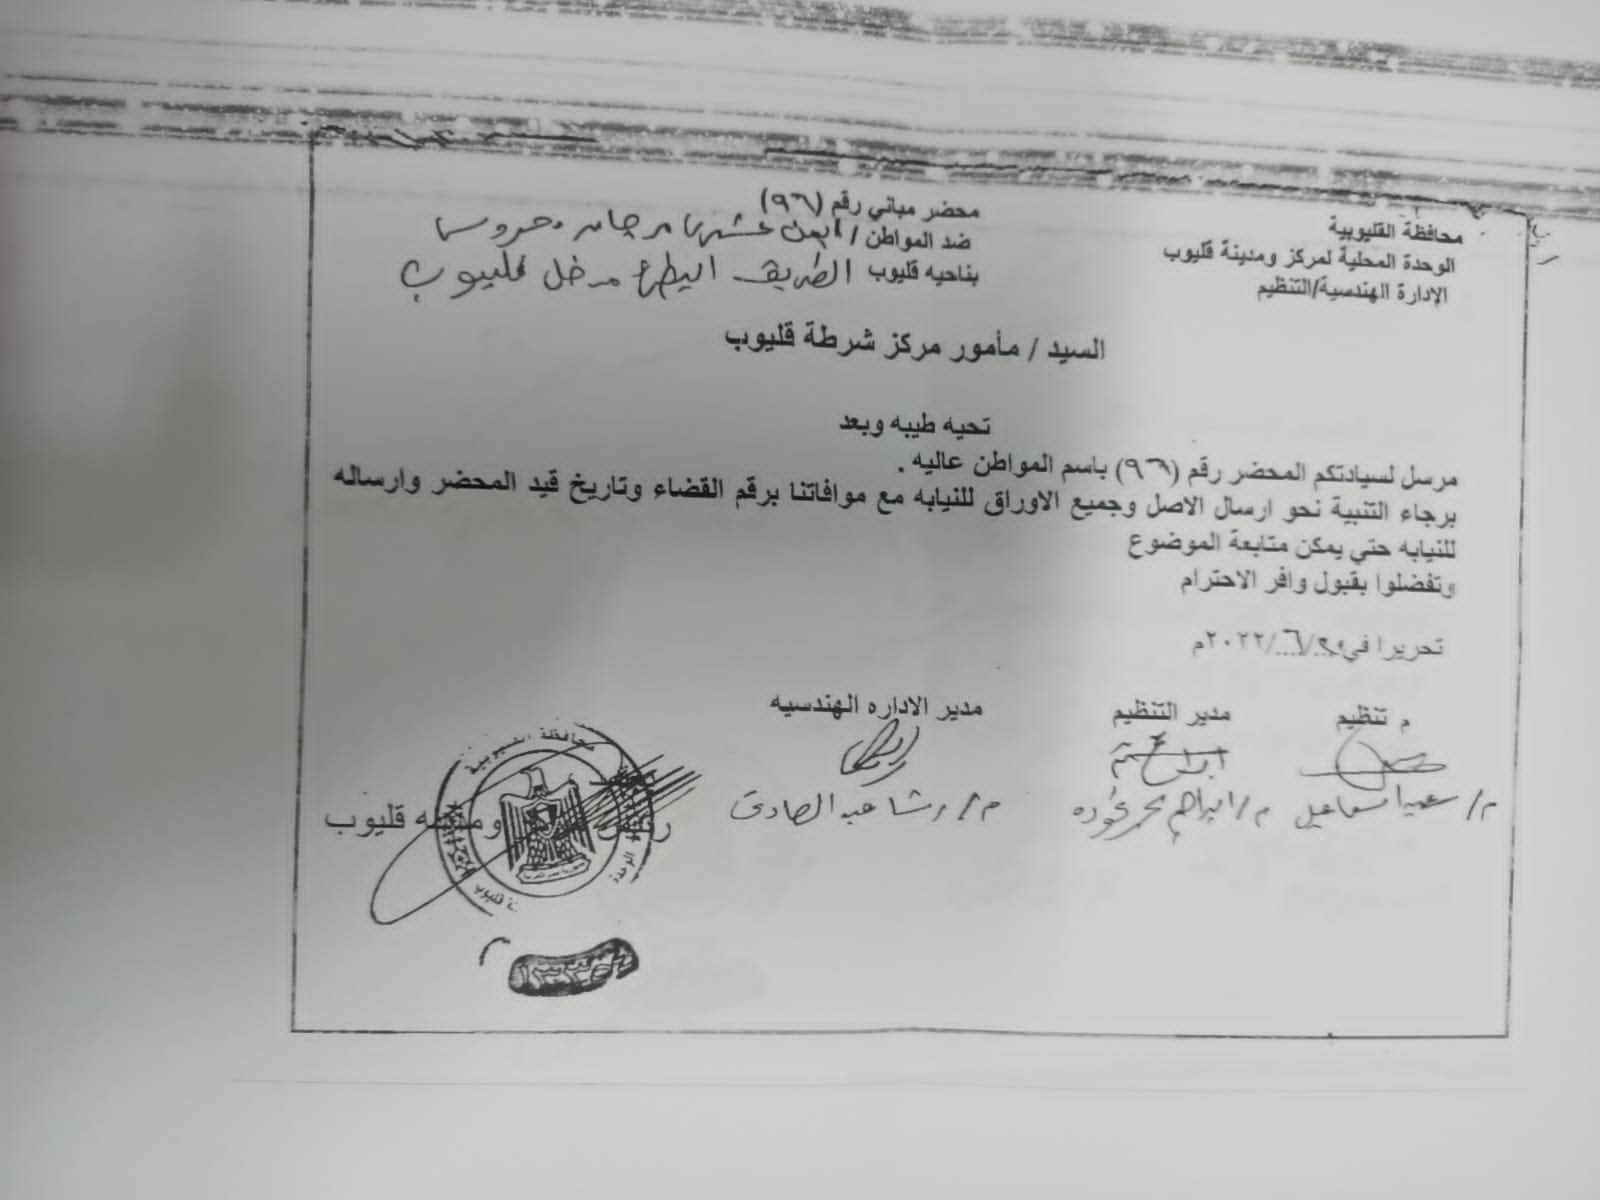 محافظة القليوبية
الوحدة المحلية لمركز ومدينة قليوب
الإدارة الهندسية/التنظيم
محضر مباني رقم (٩٦)
ضد المواطن / ايمن
بناحيه قليوب الطريق البطئ مدخل قليوب
السيد / مأمور مركز شرطة قليوب
تحيه طيبه وبعد
مرسل لسيادتكم المحضر رقم (٩٦) باسم المواطن عاليه .
برجاء التنبية نحو ارسال الاصل وجميع الاوراق للنيابه مع موافاتنا برقم القضاء وتاريخ قيد المحضر وارساله
للنيابه حتي يمكن متابعة الموضوع
وتفضلوا بقبول وافر الاحترام
تحريرا في /٦/٢٠٢٢م
م تنظيم
مدير التنظيم
مدير الاداره الهندسيه
م/ اسماعيل
م/ ابراهيم محمد
م/ رشا عبد الصادق
رئيس ومدينه قليوب
محافظة القليوبية
الوحدة
قليوب